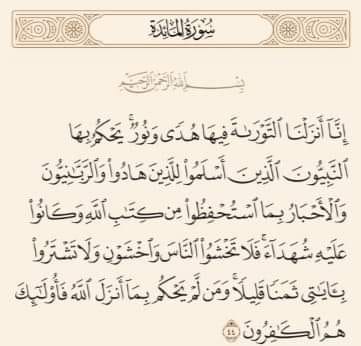 سُورَةُ المَائِدَة
بِسْمِ اللَّهِ الرَّحْمَٰنِ الرَّحِيمِ
إِنَّآ أَنزَلْنَا ٱلتَّوْرَىٰةَ فِيهَا هُدًى وَنُورٌۚ يَحْكُمُ بِهَا
ٱلنَّبِيُّونَ ٱلَّذِينَ أَسْلَمُوا۟ لِلَّذِينَ هَادُوا۟ وَٱلرَّبَّٰنِيُّونَ
وَٱلْأَحْبَارُ بِمَا ٱسْتُحْفِظُوا۟ مِن كِتَٰبِ ٱللَّهِ وَكَانُوا۟
عَلَيْهِ شُهَدَآءَۚ فَلَا تَخْشَوُا۟ ٱلنَّاسَ وَٱخْشَوْنِ وَلَا تَشْتَرُوا۟
بِـَٔايَٰتِى ثَمَنًا قَلِيلًاۚ وَمَن لَّمْ يَحْكُم بِمَآ أَنزَلَ ٱللَّهُ فَأُو۟لَٰٓئِكَ
هُمُ ٱلْكَٰفِرُونَ ٤٤